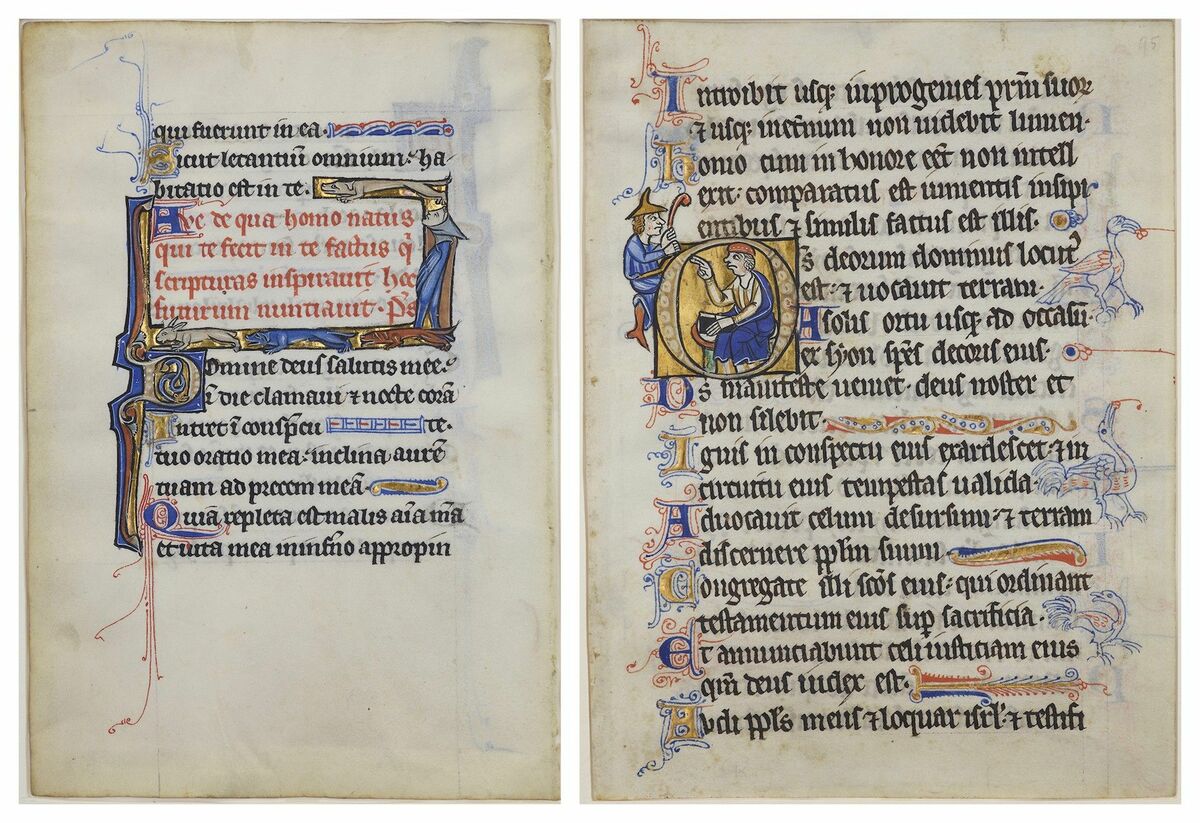 qui fuerunt in ea.
Sicut letantiū omnium: ha-
bitatio est in te.
Ave de qua homo natus
qui te fecit in te factus q̄
scripturas inspiravit hoc
futurum nunciavit. Ps
Domine deus salutis mee:
ī die clamavi ⁊ nocte corā
Intret ī conspcū te.
tuo oratio mea: inclina aurē
tuam ad precem meā.
Quiā repleta est malis aīa mā
et vita mea in infno appropin
95
Introibit usq; in progenies prm̄ suor
⁊ usq; in et̄num non videbit lumen.
homo cum in honore eēt non intell
exit: comparatus est iumentis insipi
entibus ⁊ similis factus est illis.
Ds deorum dominus locut᷒
est: ⁊ vocavit terram.
A solis ortu usq; ad occasū:
ex syon spēs decoris eius.
Ds manifeste veniet. deus noster et
non silebit.
Ignis in conspectu eius exardescet: ⁊ in
circuitu eius tempestas valida.
Advocavit celum desursum: ⁊ terram
discernere pplm̄ suum.
Congregate illi scōs eius: qui ordinant
testamentum eius sup̄ sacrificia.
Et annunciabunt celi iusticiam eius
qm̄ deus iudex est.
Audi ppls̄ meus ⁊ loquar isrl̄: ⁊ testifi